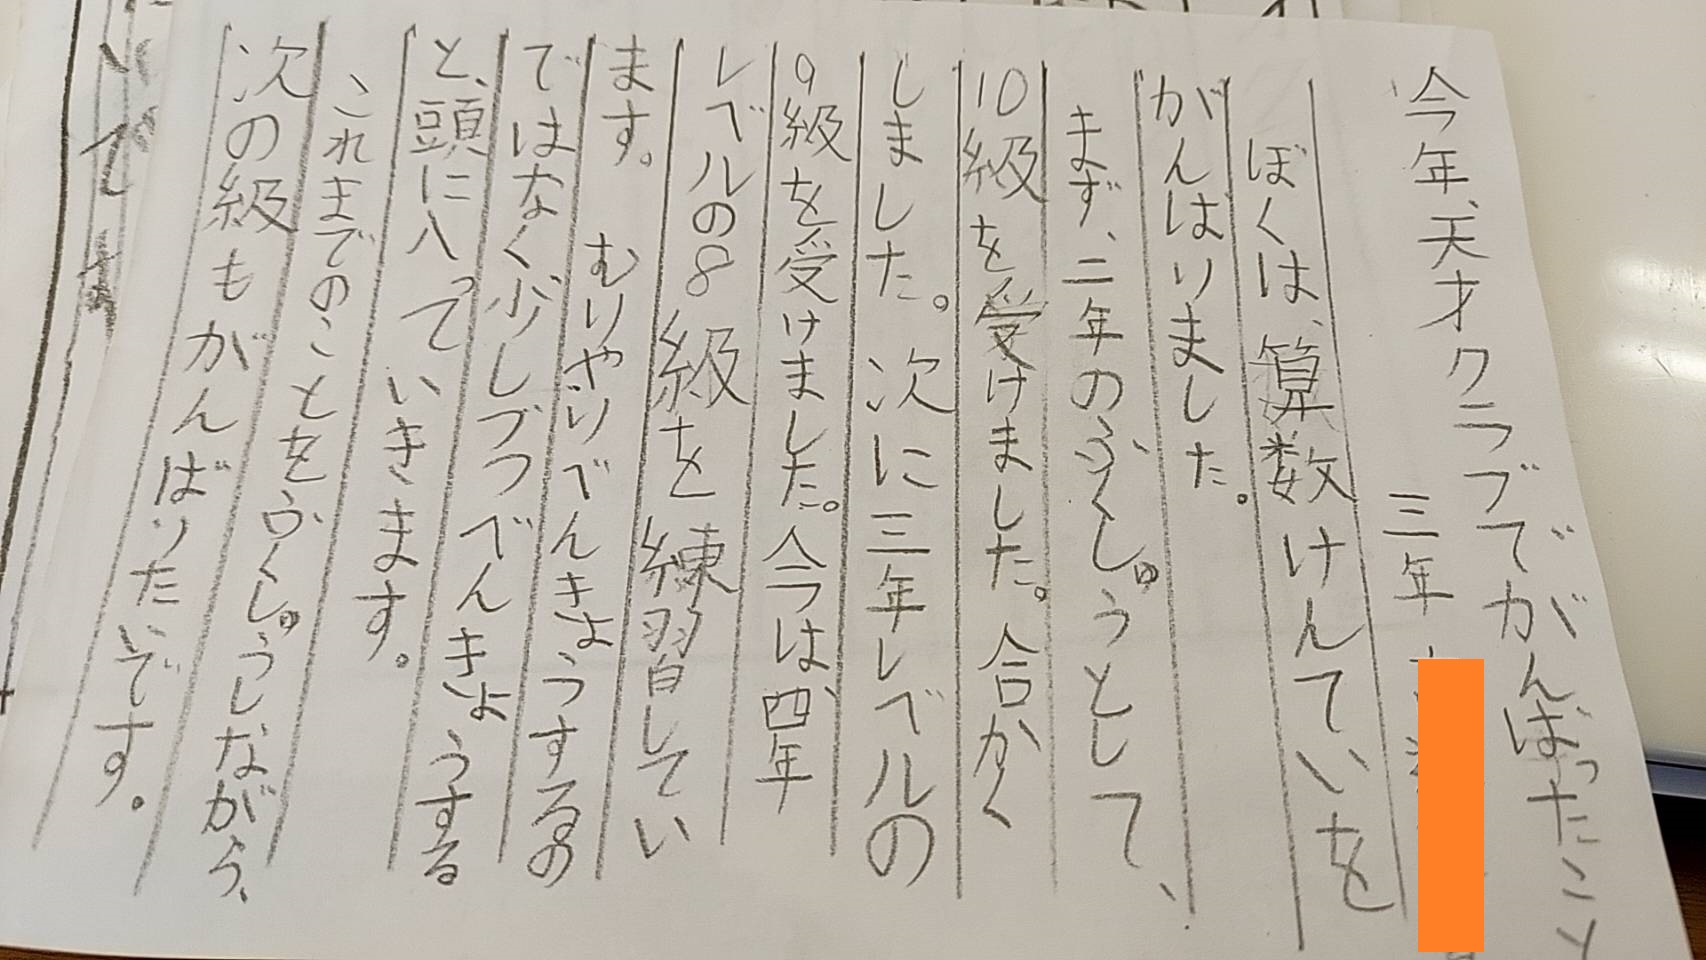 今年、天才クラブでがんばったこと
三年
ぼくは、算数けんていを
がんはりました。
まず、二年のふくしゅうとして、
10級を受けました。合かく
しました。次に三年レベルの
9級を受けました。今は、四年
レベルの8級を練習してい
ます。
むりやりべんきょうするの
ではなく少しづつべんきょうする
と、頭に入っていきます。
これまでのことをふくしゅうしながら、
次の級もがんばりたいです。